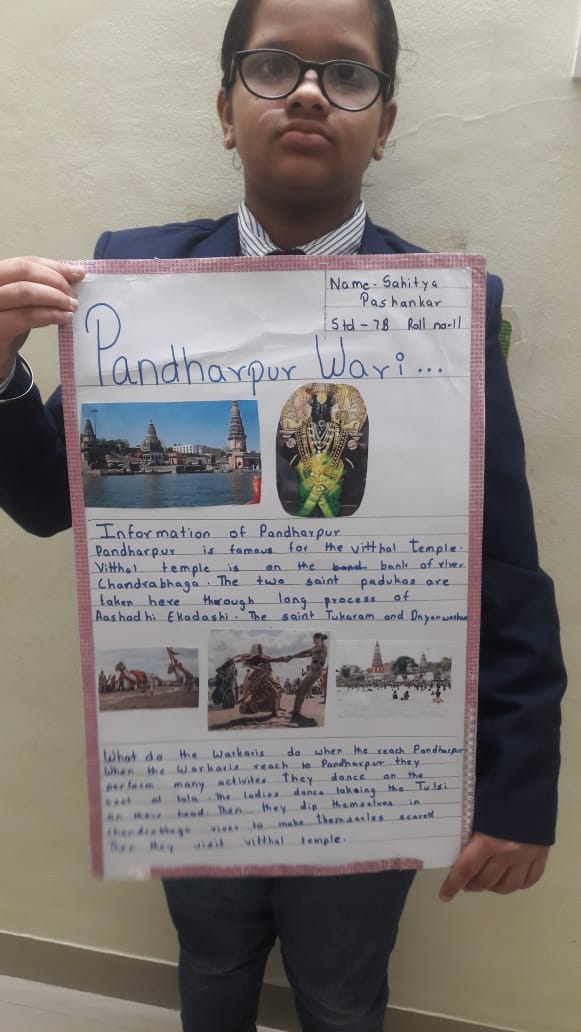 Name - Sahitya
Pashankar
Std - 7B Roll no-11
Pandharpur Wari...
Information of Pandharpur
Pandharpur is famous for the vitthal Temple.
Vitthal temple is on the band bank of river
Chandrabhaga. The two saint padukas are
taken here through long process of
Aashadhi Ekadashi. The saint Tukaram and Dnyaneshwar
What do the Warkaris do when the reach Pandharpur
When the Warkaris reach to Pandharpur they
perform many activites they dance on the
beat of tala. The ladies dance takeing the Tulsi
on their head. Then they dip themselves in
chandrabhaga river to make themsevles scared
Then they visit vitthal temple.